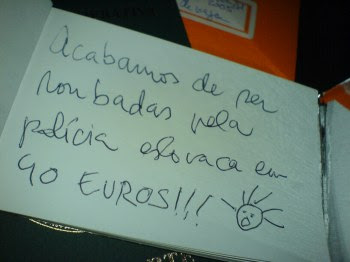 Acabamos de ser
roubadas pela
polícia eslovaca em
40 EUROS!!!